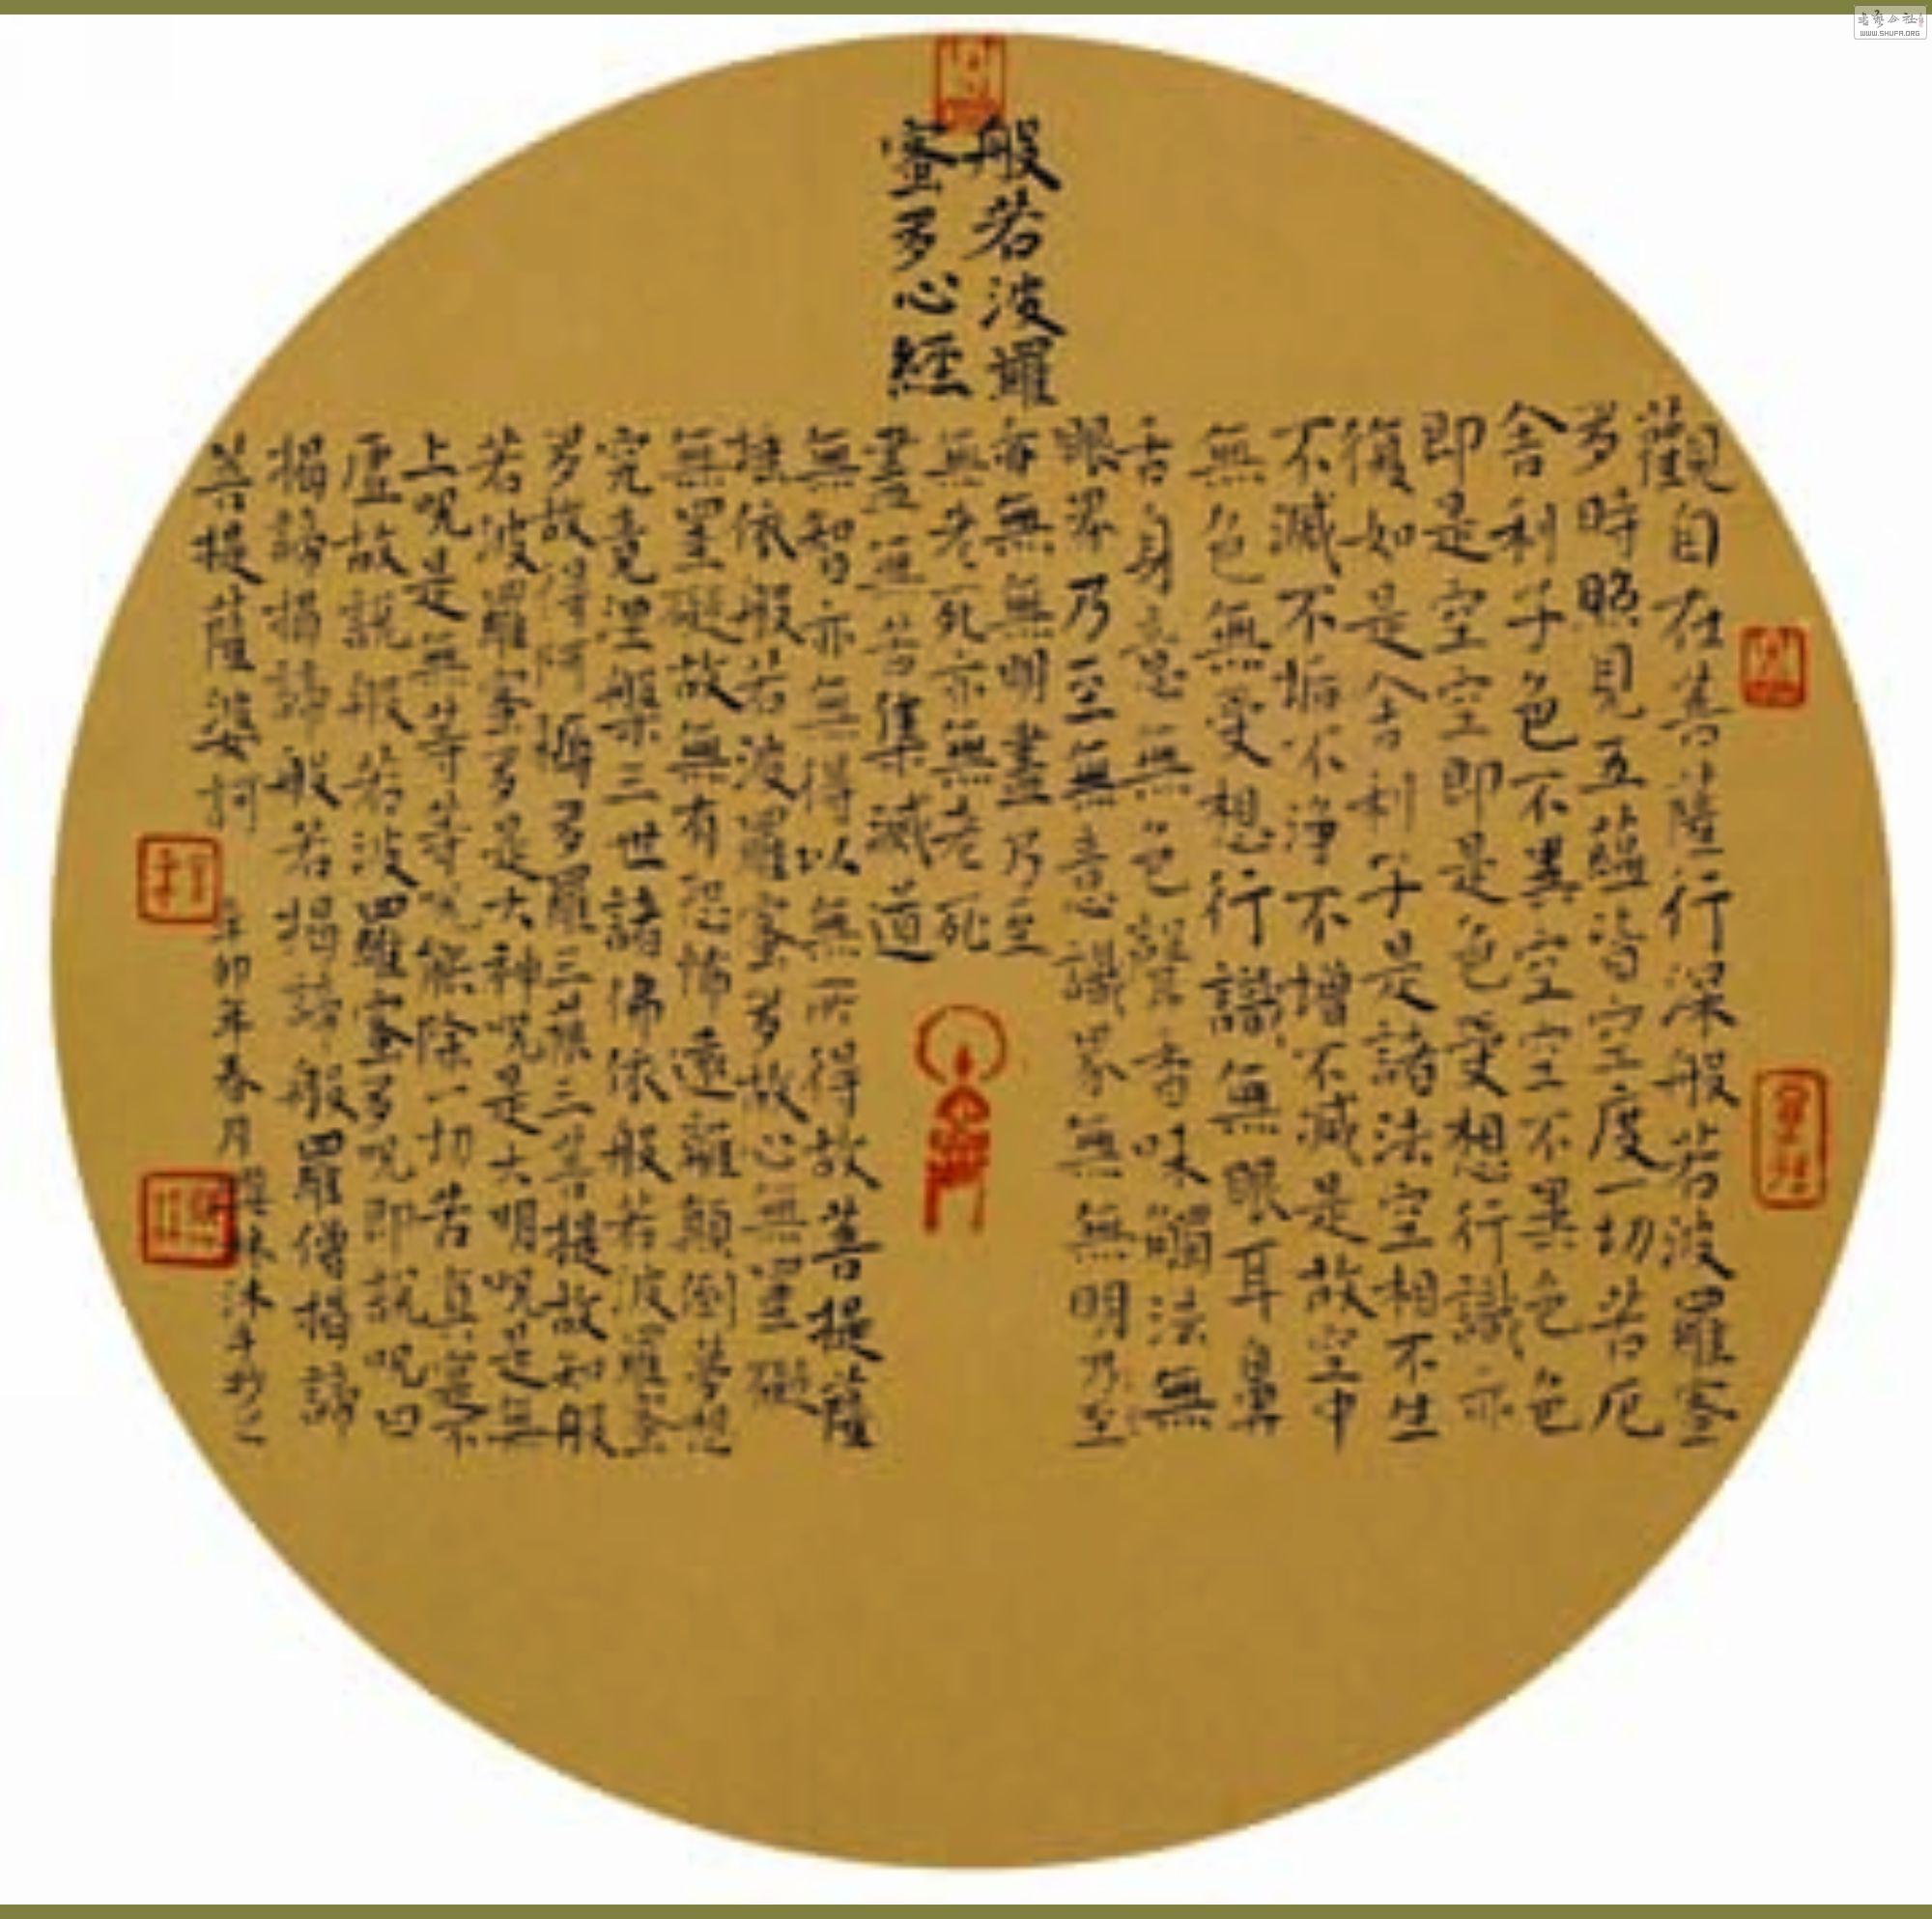 般若波羅
蜜多心經
觀自在菩薩行深般若波羅蜜
多時照見五蘊皆空度一切苦厄
舍利子色不異空空不異色色
即是空空即是色受想行識亦
復如是舍利子是諸法空相不生
不滅不垢不淨不增不減是故空中
無色無受想行識無眼耳鼻
舌身意無色聲香味觸法無
眼界乃至無意識界無無明乃至
亦無無明盡乃至
無老死亦無老死
盡無苦集滅道
無智亦無得以無所得故菩提薩
埵依般若波羅蜜多故心無罣礙
無罣礙故無有恐怖遠離顛倒夢想
究竟涅槃三世諸佛依般若波羅蜜
多故得阿耨多羅三藐三菩提故知般
若波羅蜜多是大神咒是大明咒是無
上咒是無等等咒能除一切苦真實不
虛故說般若波羅蜜多呪即說呪曰
揭諦揭諦般若揭諦般羅僧揭諦
菩提薩婆訶
辛卯年春月 沐手抄之
WWW.SHUFA.ORG